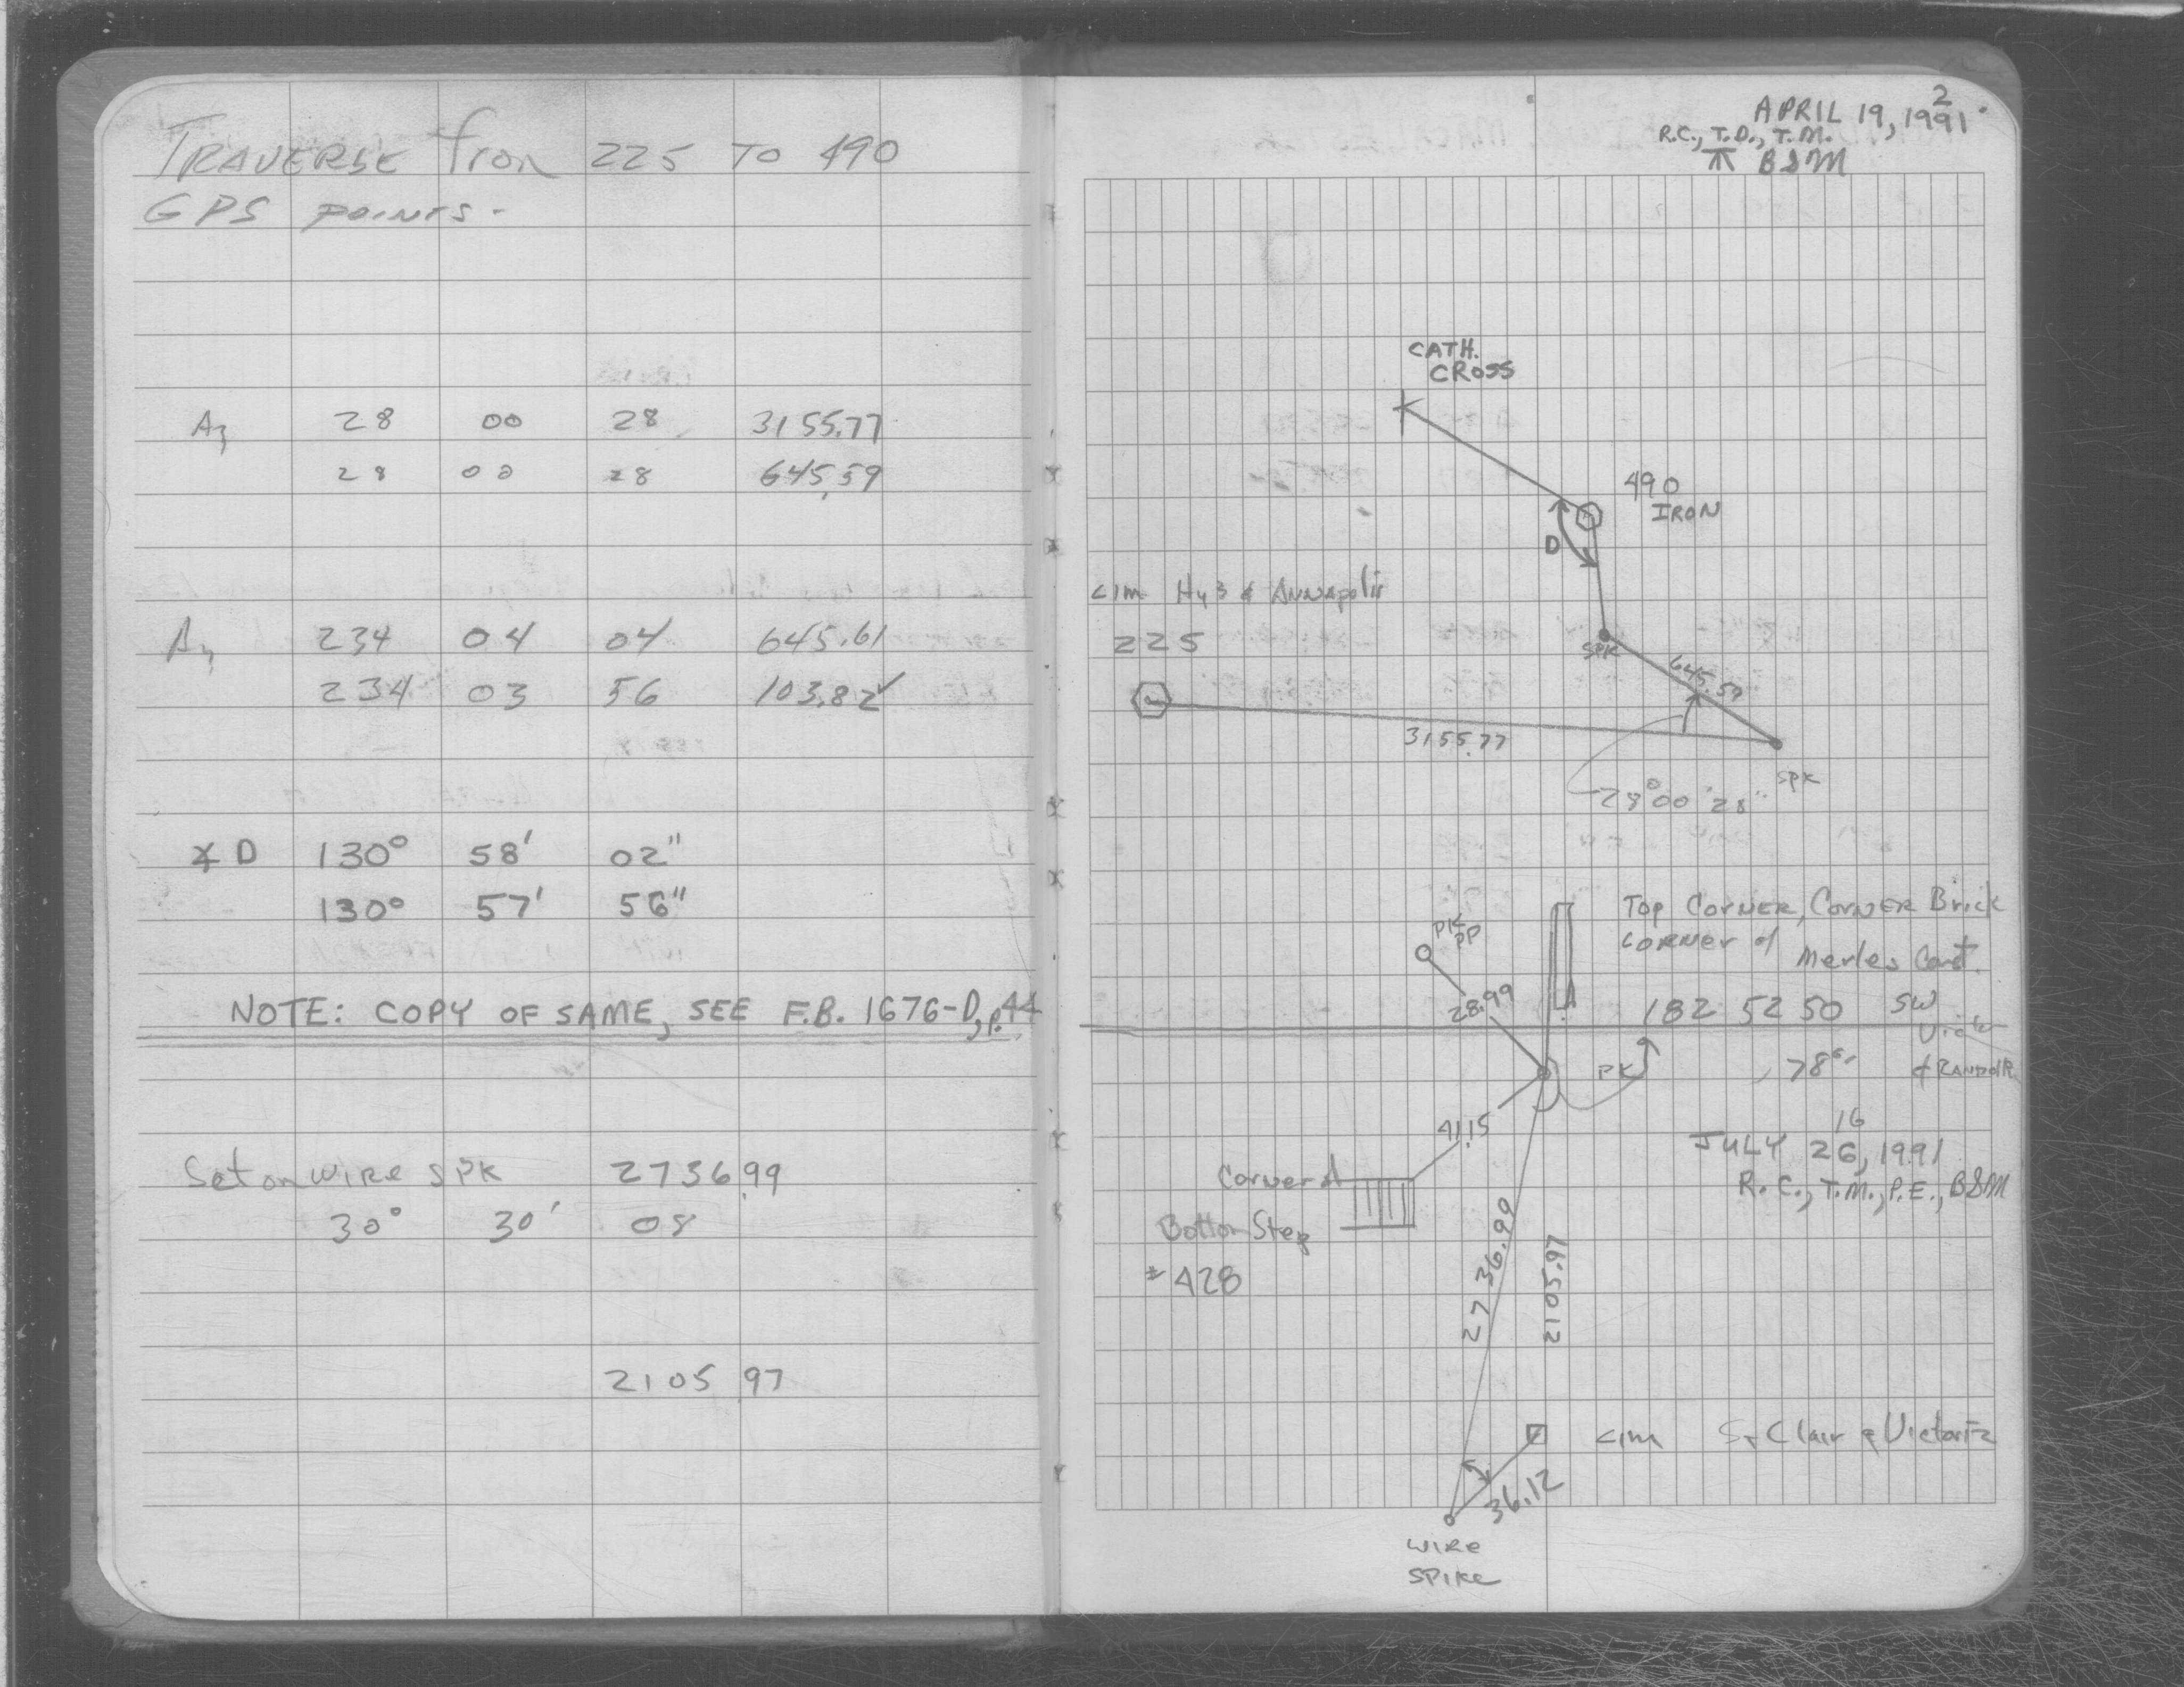 TRAVERSE from 225 TO 490
GPS POINTS -
Az 28 00 28 3155.77
28 00 28 645.59
Az 234 04 04 645.61
234 03 56 103.82 ✓
∡ D 130° 58' 02"
130° 57' 56"
NOTE: COPY OF SAME, SEE F.B. 1676-D, p.44
Set on WIRE SPK 2736.99
30° 30' 08
2105 97
2
APRIL 19, 1991
R.C., T.D., T.M.
BSM
CATH.
CROSS
490
IRON
D
CIM Hy 3 & ANNAPOLIS
225
SPK
645.59
3155.77
SPK
28°00'28"
TOP CORNER, CORNER Brick
CORNER of
Merles Const.
PK
PP
28.99
182 52 50 SW
PK
78
41.15
16
JULY 26, 1991
R.C., T.M., P.E., BSM
Corner A
Bottom Step
#428
2736.99
2105.97
CIM St Clair & Victoria
36.12
WIRE
SPIKE